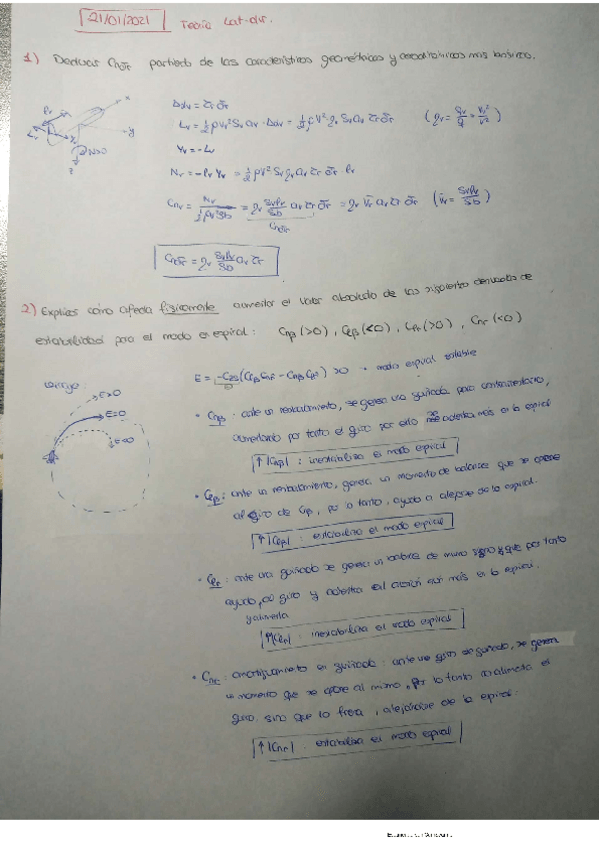 21/01/2021 Teoría Lat-dir.
1) Deducir Cnδr partiendo de las características geométricas y aerodinámicas más básicas.
Δαv = τr δr
Lv = ½ρVv²Sv av · Δαv = ½ρV² ηv Sv av τr δr (ηv = qv/q = Vv²/V²)
Yv = -Lv
Nv = -lv Yv = ½ρV² Sv ηv av τr δr lv
Cnv = Nv / ½ρV²Sb = ηv Svlv/Sb av τr δr = ηv V̄v av τr δr (V̄v = Svlv/Sb)
Cnδr
Cnδr = ηv Svlv/Sb av τr
2) Explicar cómo afecta físicamente aumentar el valor absoluto de las siguientes derivadas de
estabilidad para el modo espiral: Cnβ (>0), Clβ (<0), Clr (>0), Cnr (<0)
E = -CZs (Clβ Cnr - Cnβ Clr) > 0 modo espiral estable
E>0
E=0
E<0
• Cnβ: ante un resbalamiento, se genera una guiñada para contrarrestarlo,
aumentando por tanto el giro por ello se adentra más en la espiral
↑|Cnβ| : inestabiliza el modo espiral
• Clβ: ante un resbalamiento, genera un momento de balance que se opone
al giro de Cnβ, por lo tanto, ayuda a alejarse de la espiral.
↑|Clβ| : estabiliza el modo espiral
• Clr: ante una guiñada se genera un balance de mismo signo y que por tanto
ayuda al giro y adentra al avión aún más en la espiral.
↑|Clr| : inestabiliza el modo espiral
• Cnr: amortiguamiento en guiñada: ante un giro de guiñada, se genera
un momento que se opone al mismo, por lo tanto no alimenta el
giro sino que lo frena, alejándose de la espiral.
↑|Cnr| : estabiliza el modo espiral